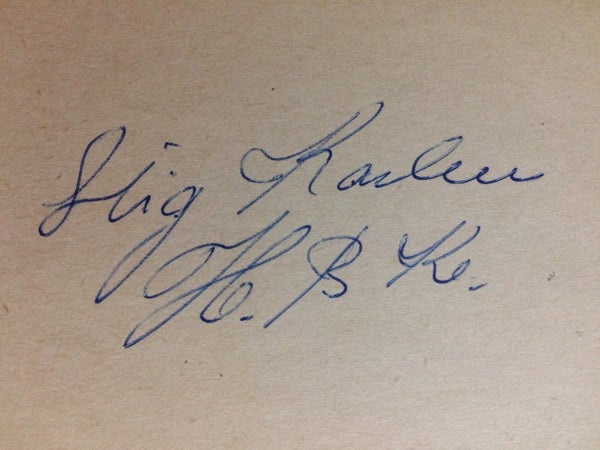 Stig Karlen
H. B K.